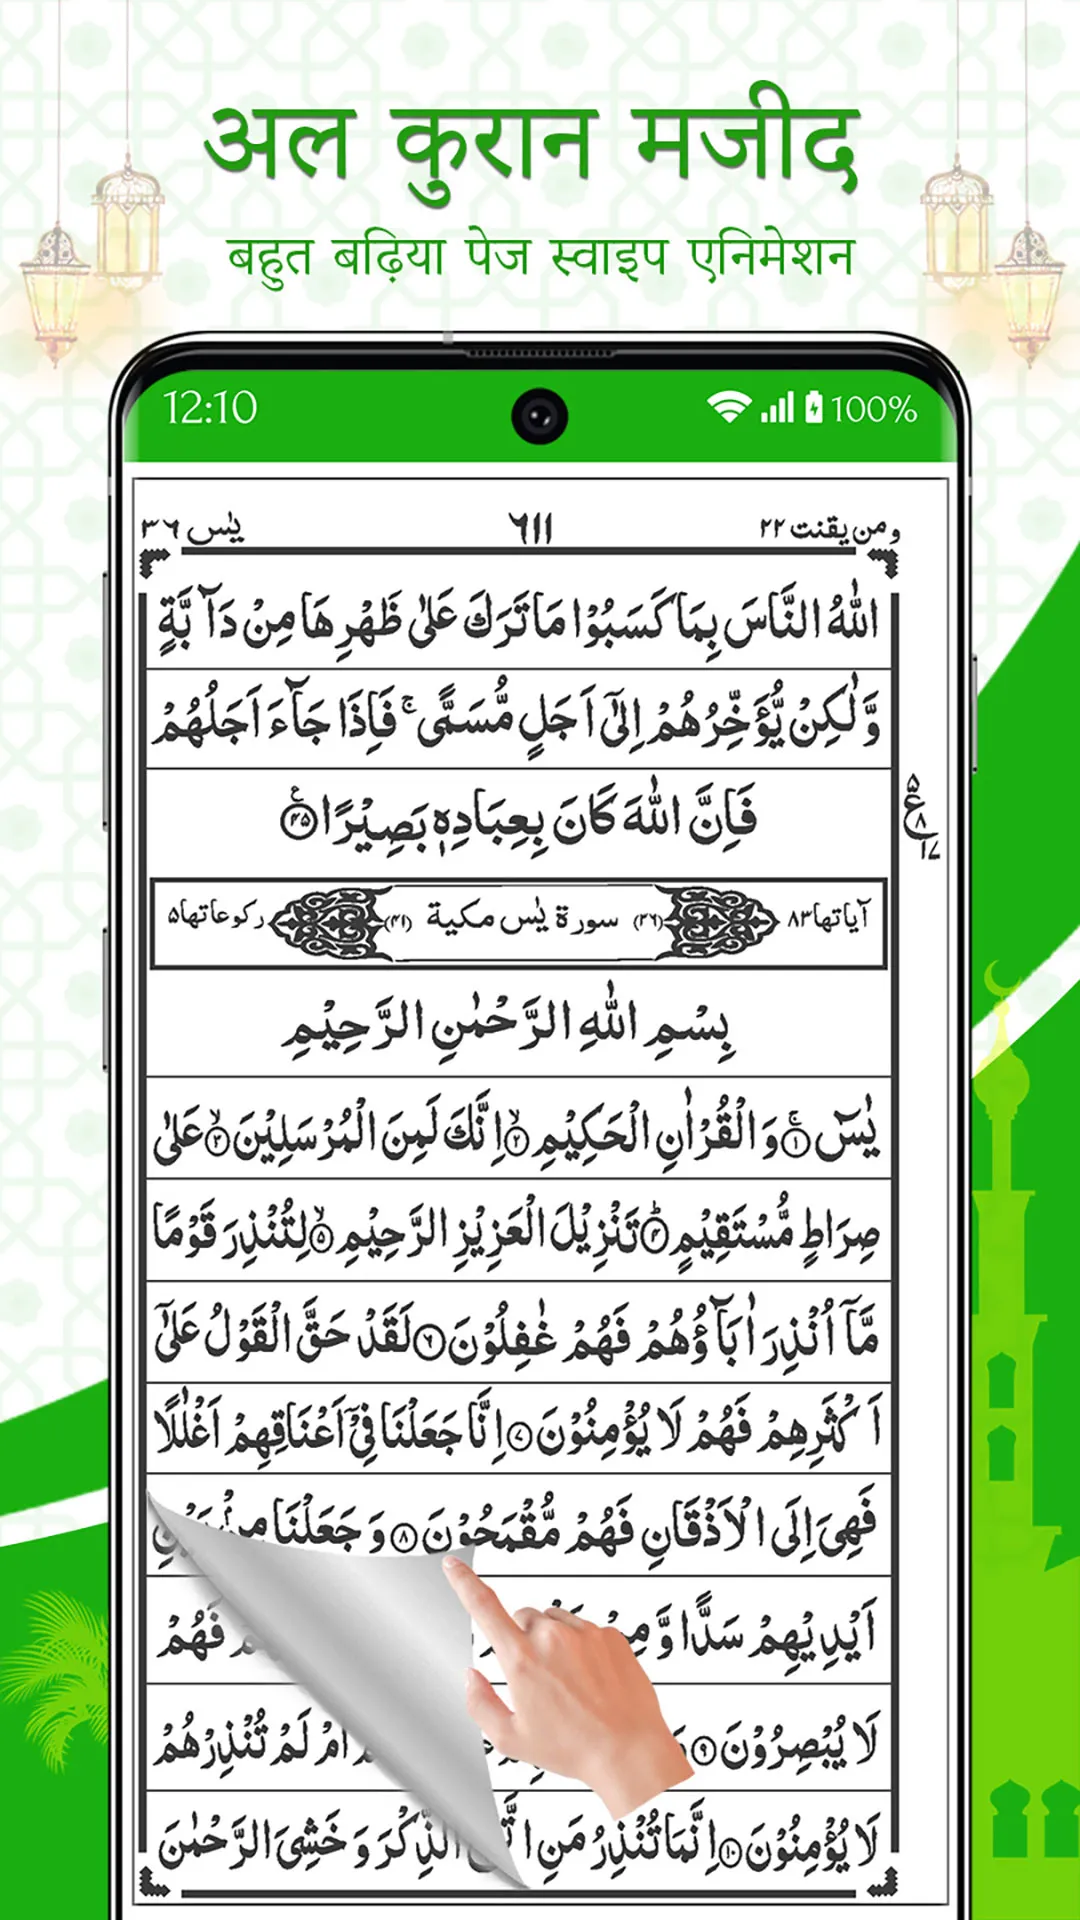 अल कुरान मजीद
बहुत बढ़िया पेज स्वाइप एनिमेशन
12:10 100%
ومن يقنت ٢٢ ٦١١ يٰس ٣٦
اللّٰهُ النَّاسَ بِمَا كَسَبُوْا مَا تَرَكَ عَلٰى ظَهْرِهَا مِنْ دَآبَّةٍ
وَّلٰكِنْ يُّؤَخِّرُهُمْ اِلٰٓى اَجَلٍ مُّسَمًّى ۚ فَاِذَا جَآءَ اَجَلُهُمْ
فَاِنَّ اللّٰهَ كَانَ بِعِبَادِهٖ بَصِيْرًا ﴿۴۵﴾
۵ ع ۸ ۱۷
آياتها ٨٣ (٣٦) سورة يٰس مكية (٤١) ركوعاتها ٥
بِسْمِ اللّٰهِ الرَّحْمٰنِ الرَّحِيْمِ
يٰسٓ ﴿۱﴾ۚ وَالْقُرْاٰنِ الْحَكِيْمِ ﴿۲﴾ۙ اِنَّكَ لَمِنَ الْمُرْسَلِيْنَ ﴿۳﴾ۙ عَلٰى
صِرَاطٍ مُّسْتَقِيْمٍ ﴿۴﴾ؕ تَنْزِيْلَ الْعَزِيْزِ الرَّحِيْمِ ﴿۵﴾ۙ لِتُنْذِرَ قَوْمًا
مَّآ اُنْذِرَ اٰبَآؤُهُمْ فَهُمْ غٰفِلُوْنَ ﴿۶﴾ لَقَدْ حَقَّ الْقَوْلُ عَلٰٓى
اَكْثَرِهِمْ فَهُمْ لَا يُؤْمِنُوْنَ ﴿۷﴾ اِنَّا جَعَلْنَا فِيْٓ اَعْنَاقِهِمْ اَغْلٰلًا
فَهِيَ اِلَى الْاَذْقَانِ فَهُمْ مُّقْمَحُوْنَ ﴿۸﴾ وَجَعَلْنَا مِنْۢ بَيْنِ
اَيْدِيْهِمْ سَدًّا وَّمِنْ فَهُمْ
لَا يُبْصِرُوْنَ ﴿۹﴾ اَمْ لَمْ تُنْذِرْهُمْ
لَا يُؤْمِنُوْنَ ﴿۱۰﴾ اِنَّمَا تُنْذِرُ مَنِ الذِّكْرَ وَخَشِيَ الرَّحْمٰنَ